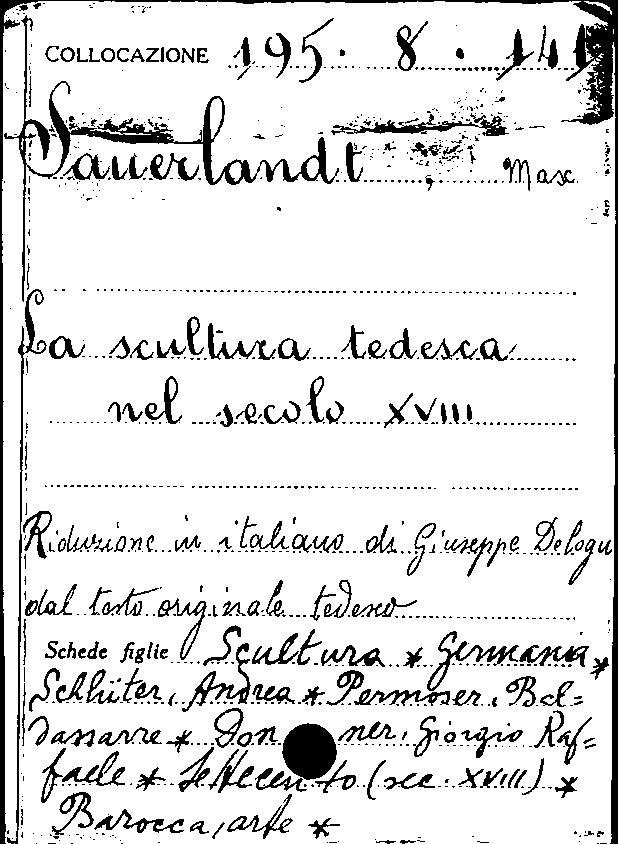 COLLOCAZIONE 195. 8. 141
Sauerlandt, Max
La scultura tedesca
nel secolo XVIII
Riduzione in italiano di Giuseppe Delogu
dal testo originale tedesco
Schede figlie Scultura * Germania *
Schlüter, Andrea * Permoser, Bal=
dassarre * Donner, Giorgio Raf=
faele * Settecento (sec. XVIII) *
Barocca, arte *